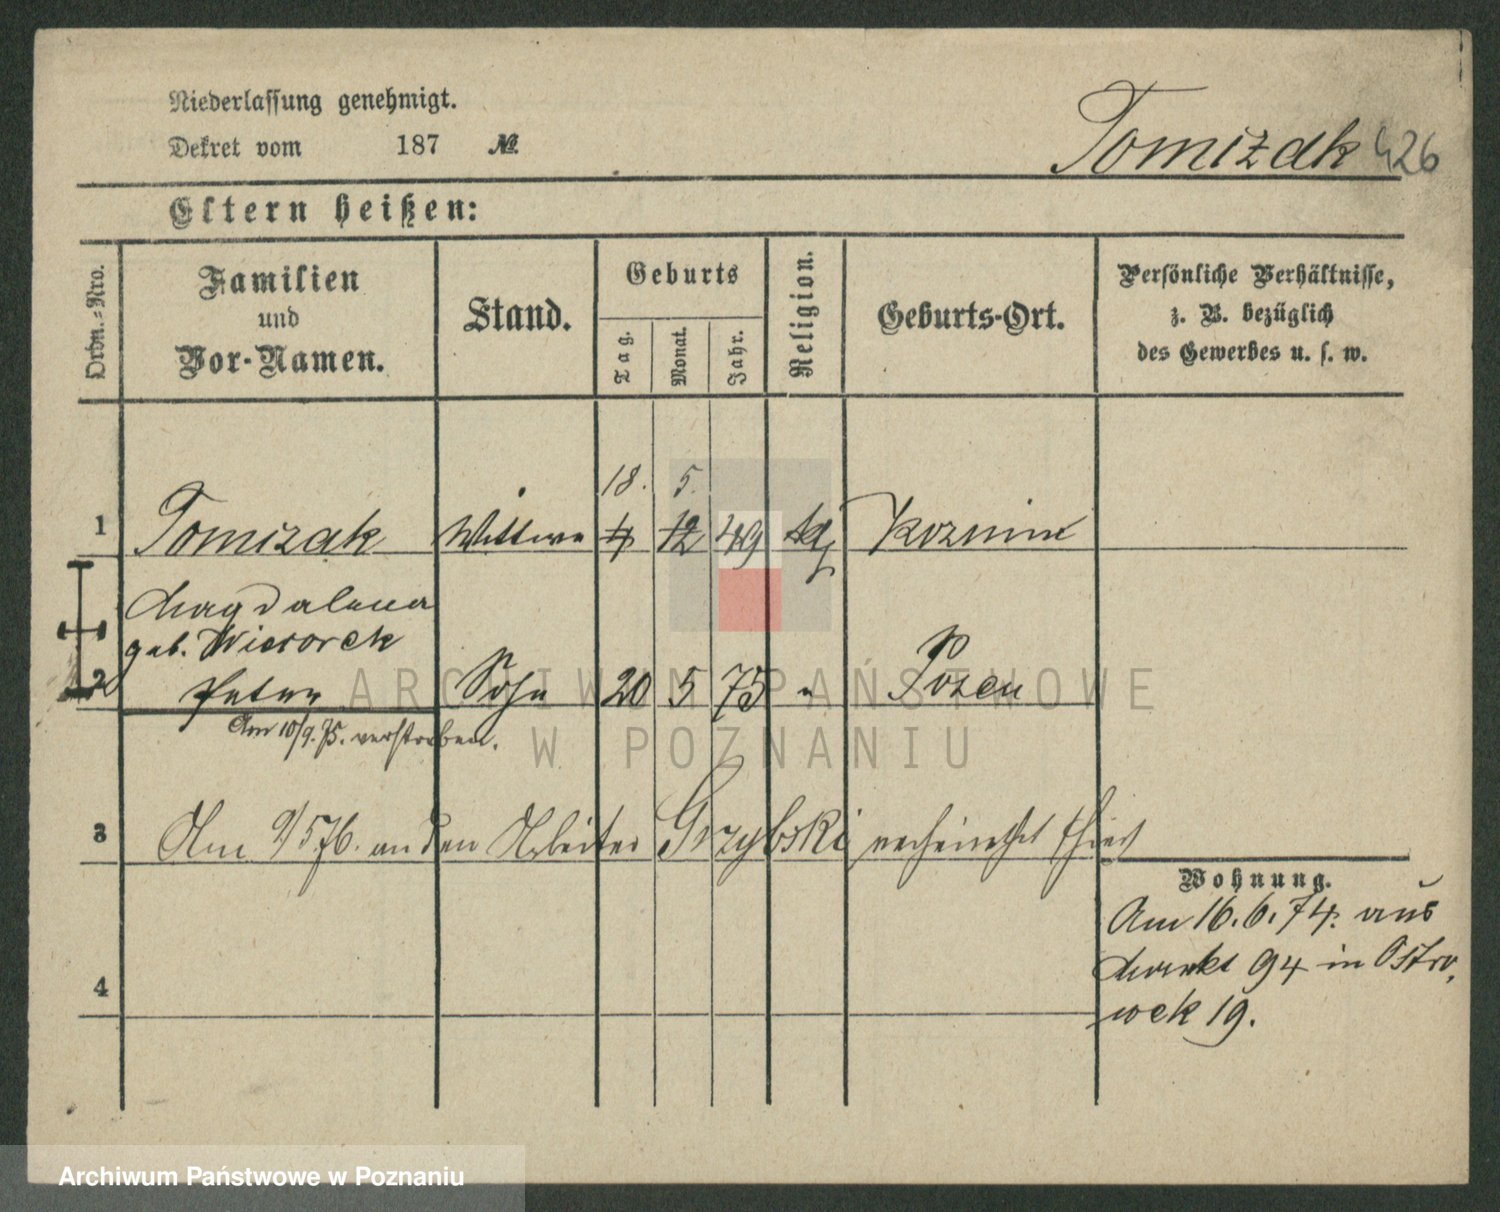 Niederlassung genehmigt.
Dekret vom 187 №
Tomizak 426
Eltern heißen:
Ordn.-Nro.
Familien
und
Vor-Namen.
Stand.
Geburts
Tag.
Monat.
Jahr.
Religion.
Geburts-Ort.
Persönliche Verhältnisse,
z. B. bezüglich
des Gewerbes u. s. w.
18. 5.
1 Tomizak Wittwe 12 49 Kozmin
Magdalena
geb. Wiesorek
2 Peter Sohn 20 5 75 " Posen
Am 10/9.75. verstorben.
3 Am 9/5 76. an den Arbeiter Grzybski verheirathet
Wohnung.
Am 16.6.74. aus
Markt 94 in Ostro,
wek 19.
4
ARCHIWUM PAŃSTWOWE
W POZNANIU
Archiwum Państwowe w Poznaniu